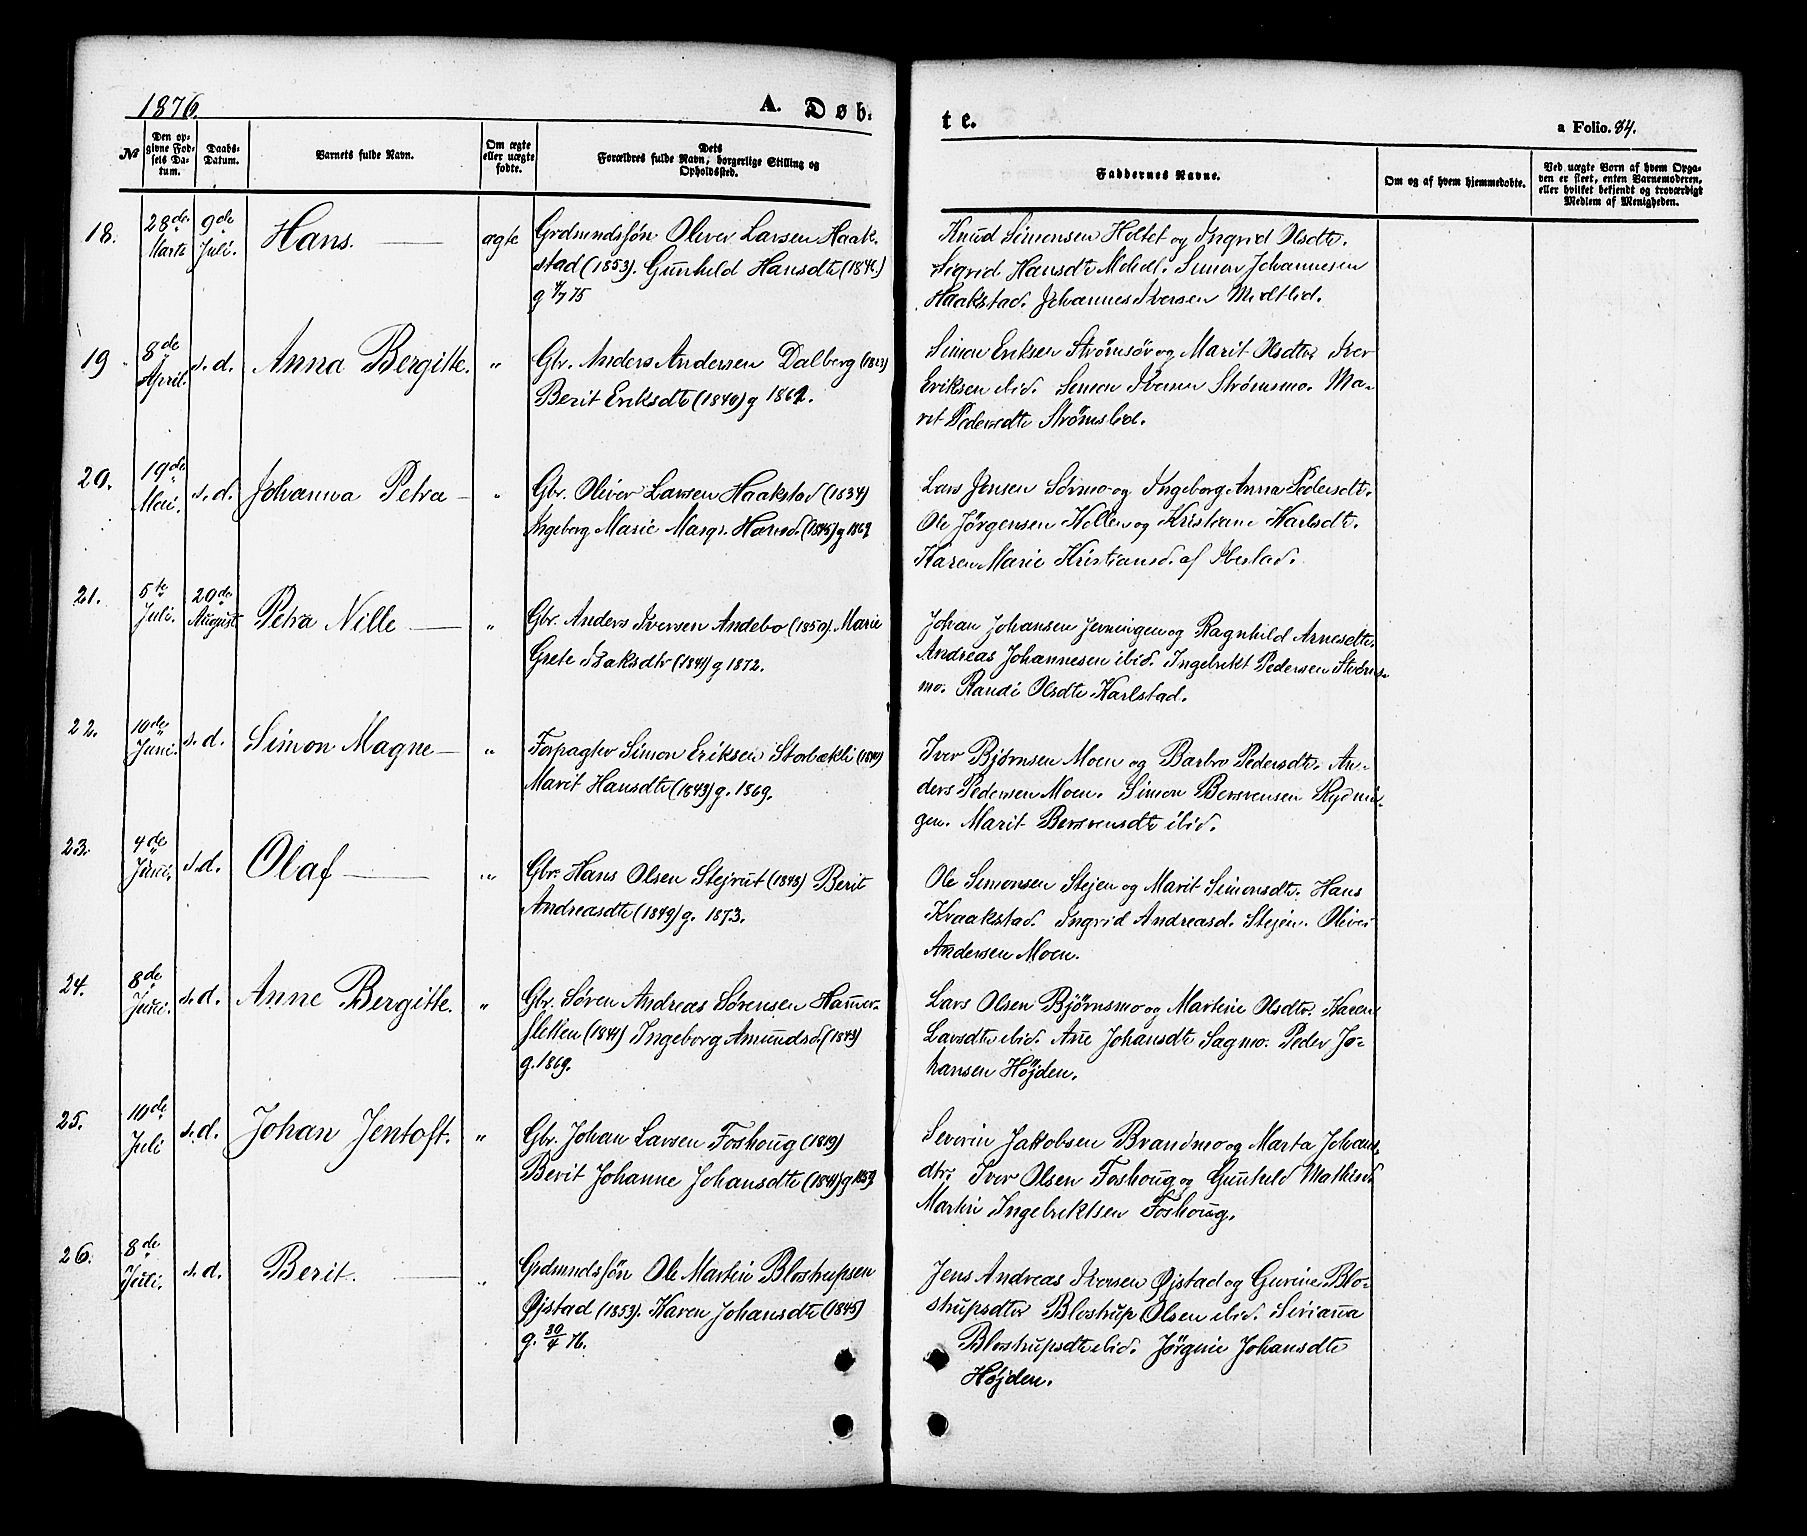 1876.
A. Døb-
te.
a Folio. 84.
№
Den op-
givne Fød-
sels Da-
tum.
Daabs-
Datum.
Barnets fulde Navn.
Om ægte
eller uægte
fødte.
Dets
Forældres fulde Navn, borgerlige Stilling og
Opholdssted.
Faddernes Navne.
Om og af hvem hjemmedøbte.
Ved uægte Børn af hvem Opga-
ven er skeet, enten Barnemoderen,
eller hvilket bekjendt og troværdigt
Medlem af Menigheden.
18.
28de
Marts
9de
Juli.
Hans.
ægte
Grdmndsføn Oliver Larsen Haak-
stad (1853). Gunhild Hansdtr
g 4/7 75
Knud Simonsen Holtet og Ingrid Olsdtr.
Sigrid Hansdtr Simon Johannesen
Haakstad. Johannes Iversen Midtlid.
19
8de
April.
s. d.
Anna Bergitte.
"
Gbr. Anders Andersen Dalberg
Berit Eriksdtr (1840) g 1862.
Simon Eriksen Strømsør og Marit Olsdtr Iver
Eriksen ibid. Simon Iversen Strømsmo. Ma-
rit Pedersdtr Strømslid.
20.
19de
Mai.
s. d.
Johanna Petra
"
Gbr. Oliver Larsen Haakstad (1834)
Ingeborg Marie Margr. Hansd. (1845) g 1869
Lars Jensen Sørmo og Ingeborg Anna Pedersdtr.
Ole Jørgensen Kollen og Kristiane Karlsdtr.
Karen Marie Kristiansd. af Ibestad.
21.
5te
Juli.
20de
August
Petra Nille
"
Gbr. Anders Iversen Andebo (1850). Marie
Grete Isaksdtr (1841) g 1872.
Johan Johansen og Ragnhild Arnesdtr.
Andreas Johannesen ibid. Ingebrikt Pedersen Strøms-
mo. Randi Olsdtr Karlstad.
22.
10de
Juni.
s. d.
Simon Magne
"
Forpagter Simon Eriksen Storbækli
Marit Hansdtr (1843) g. 1869.
Iver Bjørnsen Moen og Barbro Pedersdtr. An-
ders Pedersen Moen. Simon Bersvensen
gen. Marit Bersvensdtr ibid.
23.
4de
Juni.
s. d.
Olaf
"
Gbr. Hans Olsen Stejrut (1848) Berit
Andreasdtr (1849) g. 1873.
Ole Simonsen Stejen og Marit Simonsdtr. Hans
Kvaakstad. Ingrid Andreasd. Stejen. Oliver
Andersen Moen.
24.
8de
Juni.
s. d.
Anne Bergitte.
"
Gbr. Søren Andreas Sørensen Hamer-
sletten (1841) Ingeborg Amundsd. (1843)
g. 1869.
Lars Olsen Bjørnsmo og Martine Olsdtr. Karen
Larsdtr ibid. Ane Johansdtr Sagmo. Peder Jo-
hansen Højden.
25.
10de
Juli
s. d.
Johan Jentoft.
"
Gbr. Johan Larsen Foshoug (1819)
Berit Johanne Johansdtr (1841) g 1859
Severin Jakobsen Brandmo og Marta Johans-
dtr. Iver Olsen Foshoug og Gunhild Mathisd.
Martin Ingebriktsen Foshoug.
26.
8de
Juli.
s. d.
Berit.
"
Grdmndsføn Ole Martin Blostrupsen
Øjstad (1853). Karen Johansdtr (1845)
g. 30/4 76.
Jens Andreas Iversen Øjstad og Gurine Blo-
strupsdtr Blostrup Olsen ibid. Sirianna
Blostrupsdtr ibid. Jørgine Johansdtr
Højden.